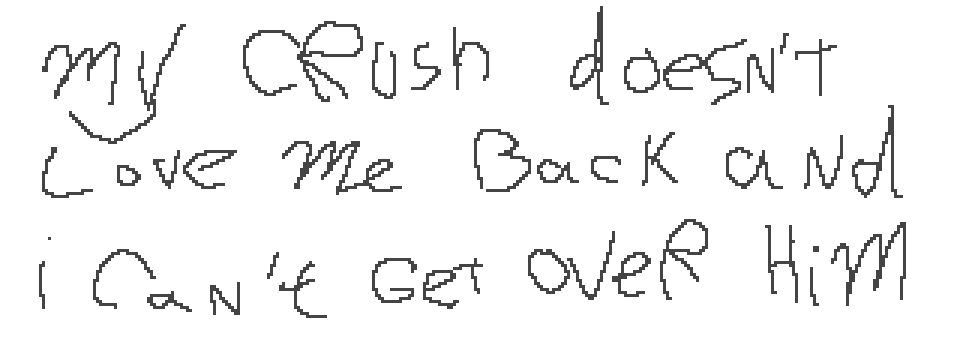 my CRUsh doesN't
Love Me Back aNd
i CaN't Get OveR HiM